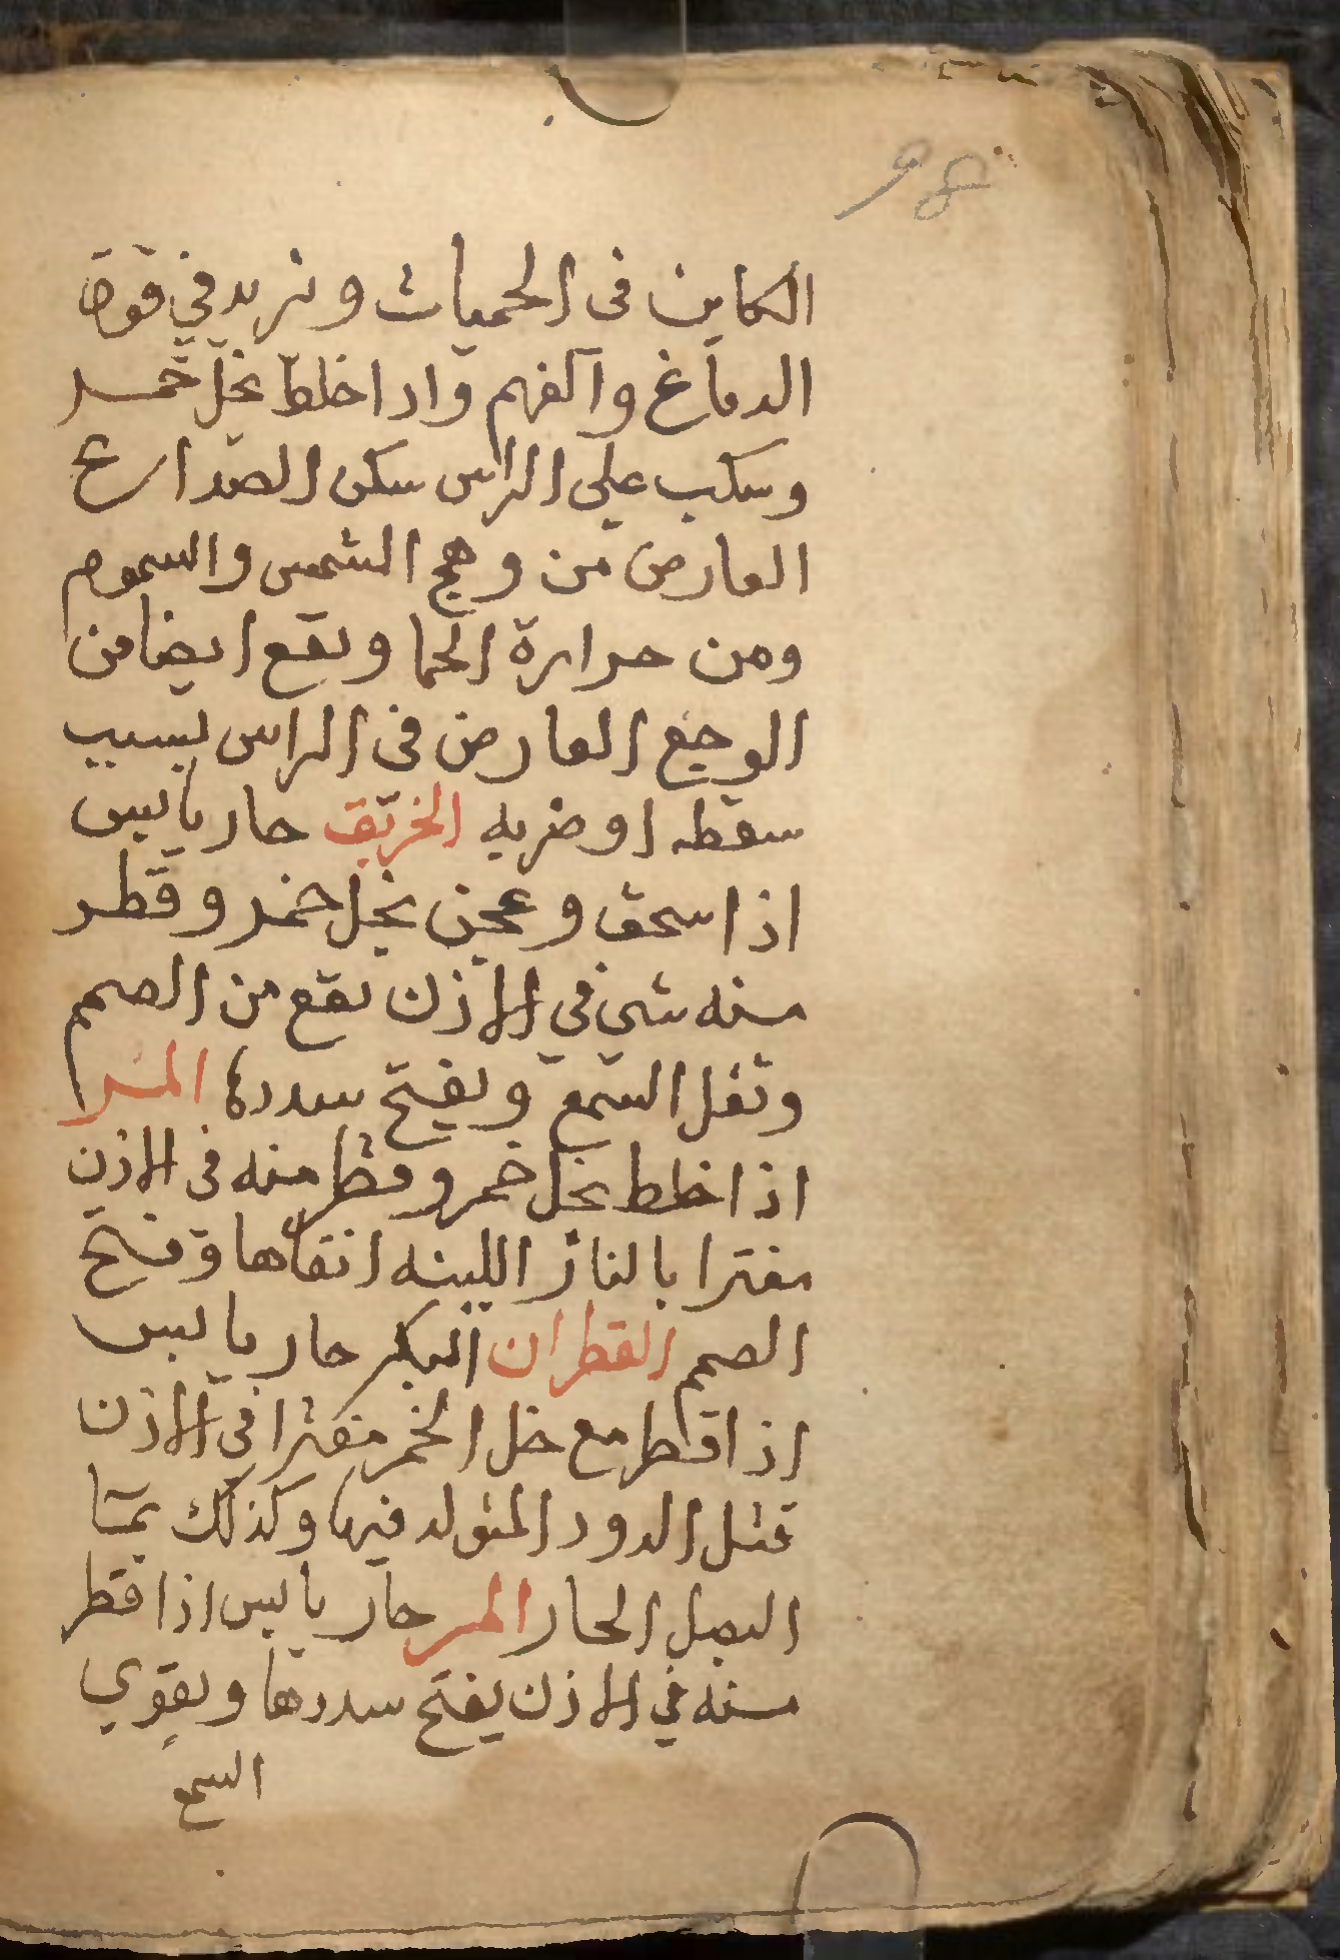 98
الكاين فى الحميات ويزيد في قوة
الدماغ والفهم واذا خلط بخل خمر
وسكب على الراس سكن الصداع
العارض من وهج الشمس والسموم
ومن حرارة الحما ونفع ايضا من
الوجع العارض فى الراس بسبب
سقطه او ضربه الخربق حار يابس
اذا سحق وعجن بخل خمر وقطر
منه شي في الاذن نفع من الصمم
وثقل السمع ويفتح سددها المر
اذا خلط بخل خمر وقطر منه فى الاذن
مفترا بالنار اللينه انقاها وفتح
الصمم القطران البكر حار يابس
اذا قطر مع خل الخمر مفترا في الاذن
قتل الدود المتولد فيها وكذلك بما
البصل الحار المر حار يابس اذا قطر
منه في الاذن يفتح سددها ويقوي
السمع